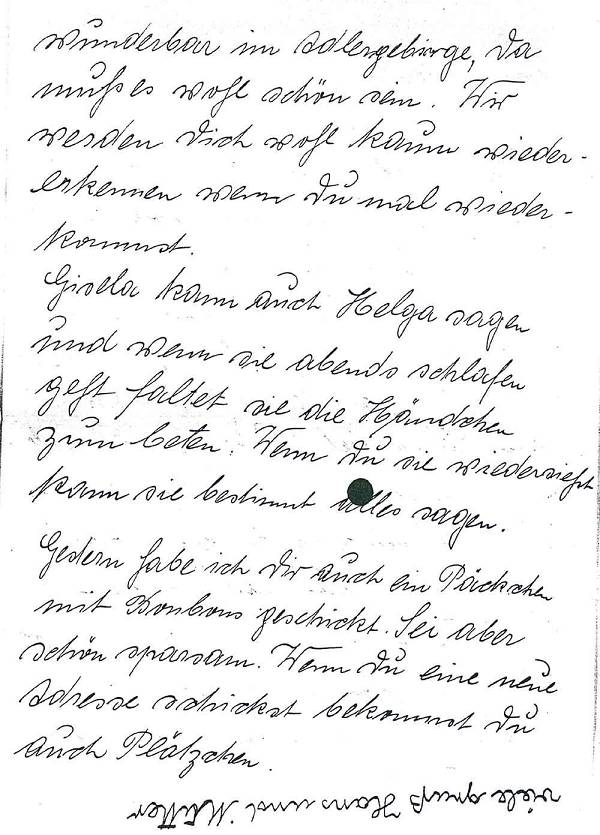 wunderbar im Adlergebirge, da
muß es wohl schön sein. Wir
werden Dich wohl kaum wieder-
erkennen wenn Du mal wieder-
kommst.
Gisela kann auch Helga sagen
und wenn sie abends schlafen
geht faltet sie die Händchen
zum beten. Wenn Du sie wiedersiehst
kann sie bestimmt alles sagen.
Gestern habe ich Dir auch ein Päckchen
mit Bonbons geschickt. Sei aber
schön sparsam. Wenn Du eine neue
Adresse schickst bekommst Du
auch Plätzchen.
viele gruß Hans und Mutter